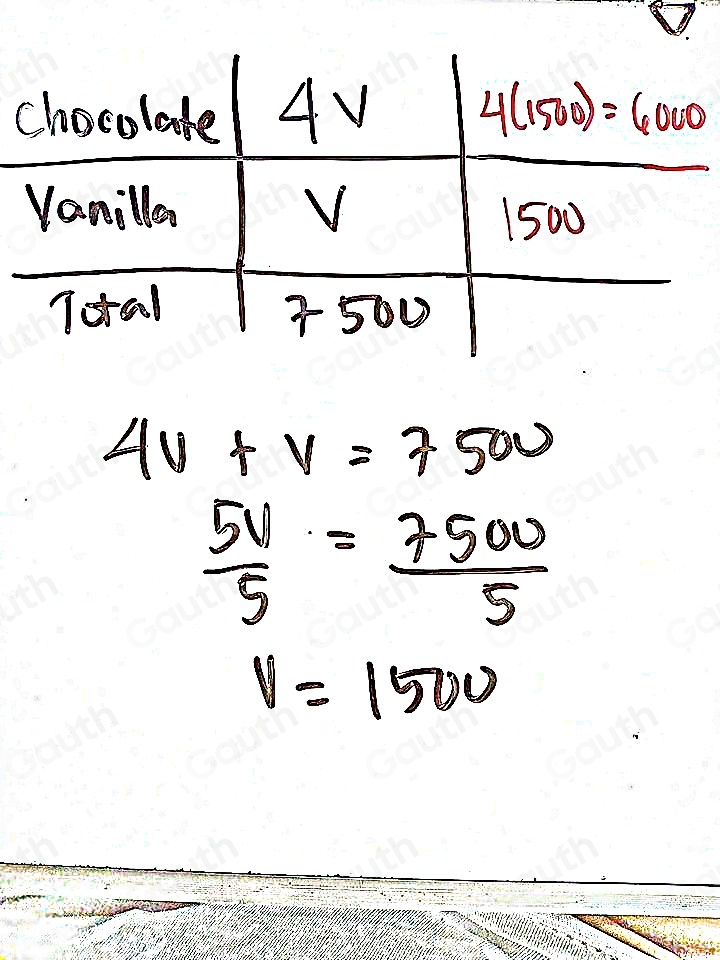 Chocolate 4V 4(1500) = 6000
Vanilla V 1500
Total 7500
4V + V = 7500
5V = 7500
5 5
V = 1500
Gauth